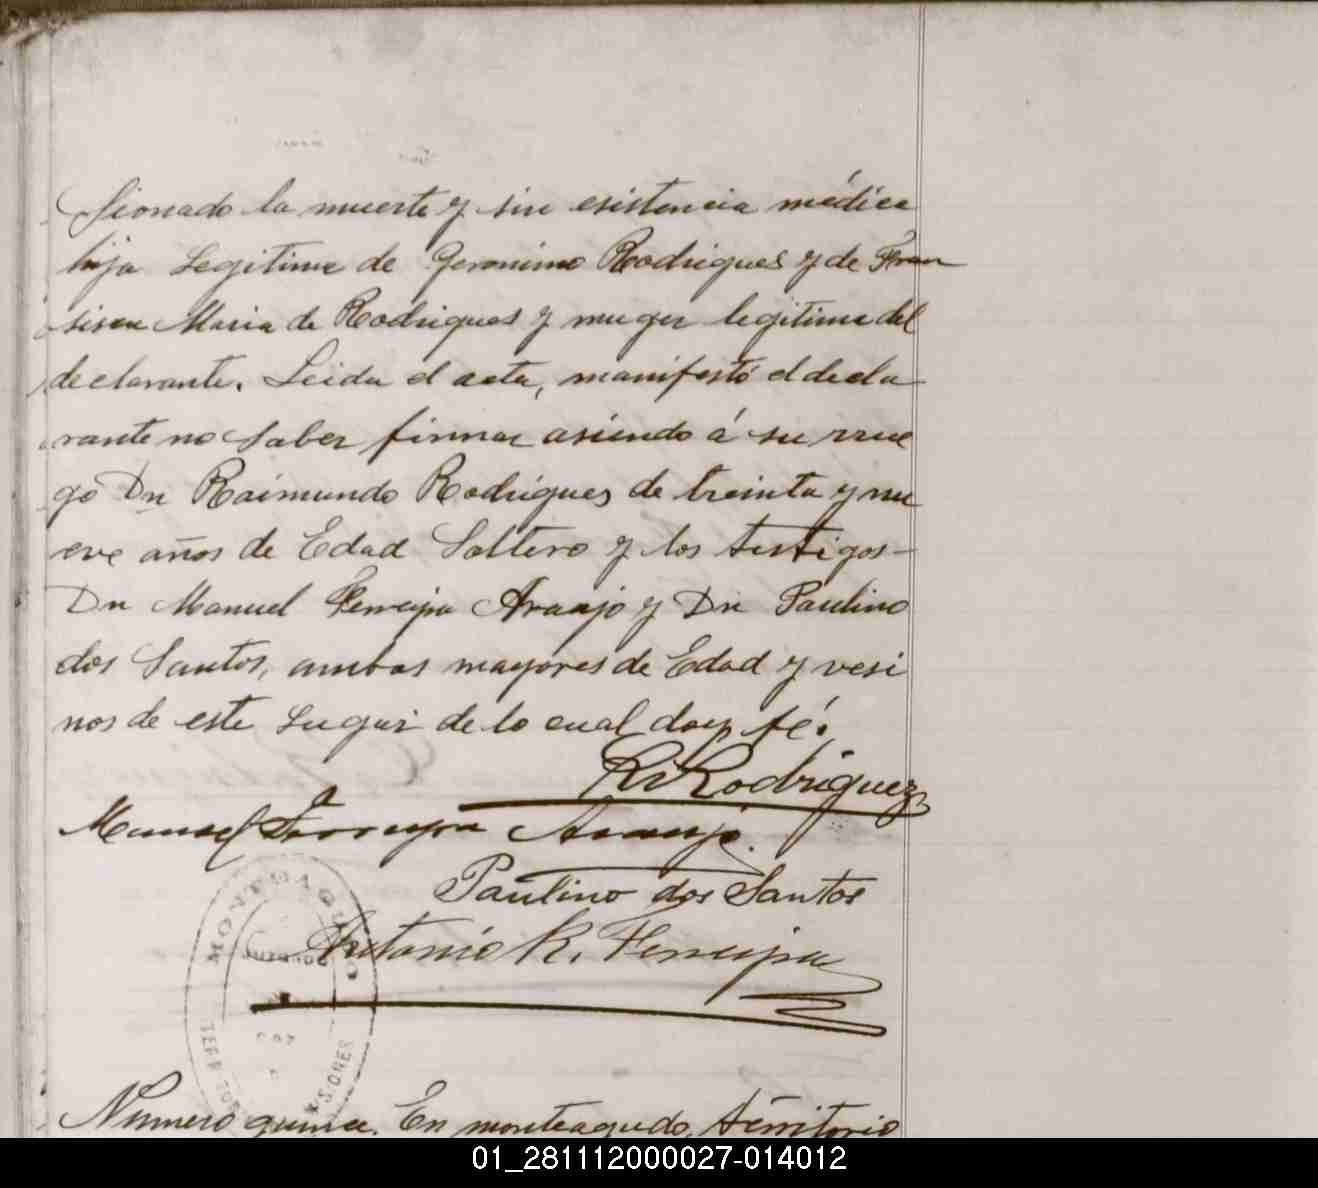 sionado la muerte y sin esistencia médica
hija Legitima de Geronimo Rodrigues y de Fran
sisca Maria de Rodrigues y muger legitima del
declarante. Leida el acta, manifestó el decla
rante no saber firmar asiendo á su rrue
go Dn Raimundo Rodrigues de treinta y nu
eve años de Edad Soltero y los testigos
Dn Manuel Ferreyra Araujo y Dn Paulino
dos Santos, ambos mayores de Edad y vesi
nos de este Lugar de lo cual doy fé.
R. Rodriguez
Manuel Ferreyra Araujo.
Paulino dos Santos
Antonio R. Ferreyra
MONTEAGUDO
Numero quince. En monteagudo, térritorio
01_281112000027-014012